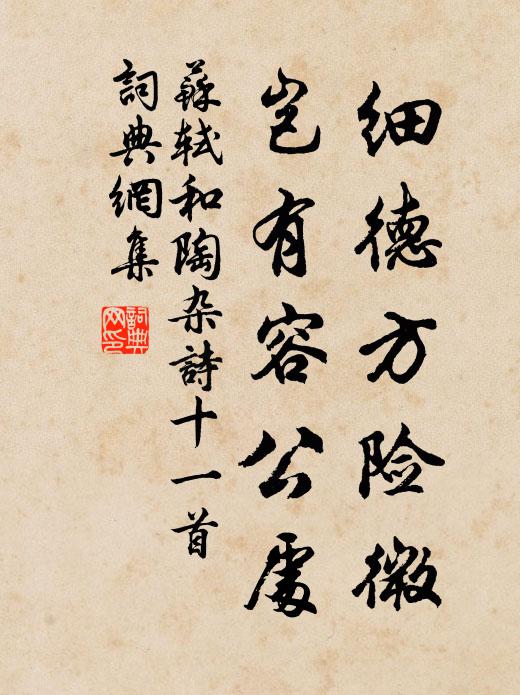 细德方险微
岂有容公處
蘇轼和陶杂詩十一首
詞典網集
詞典
网印